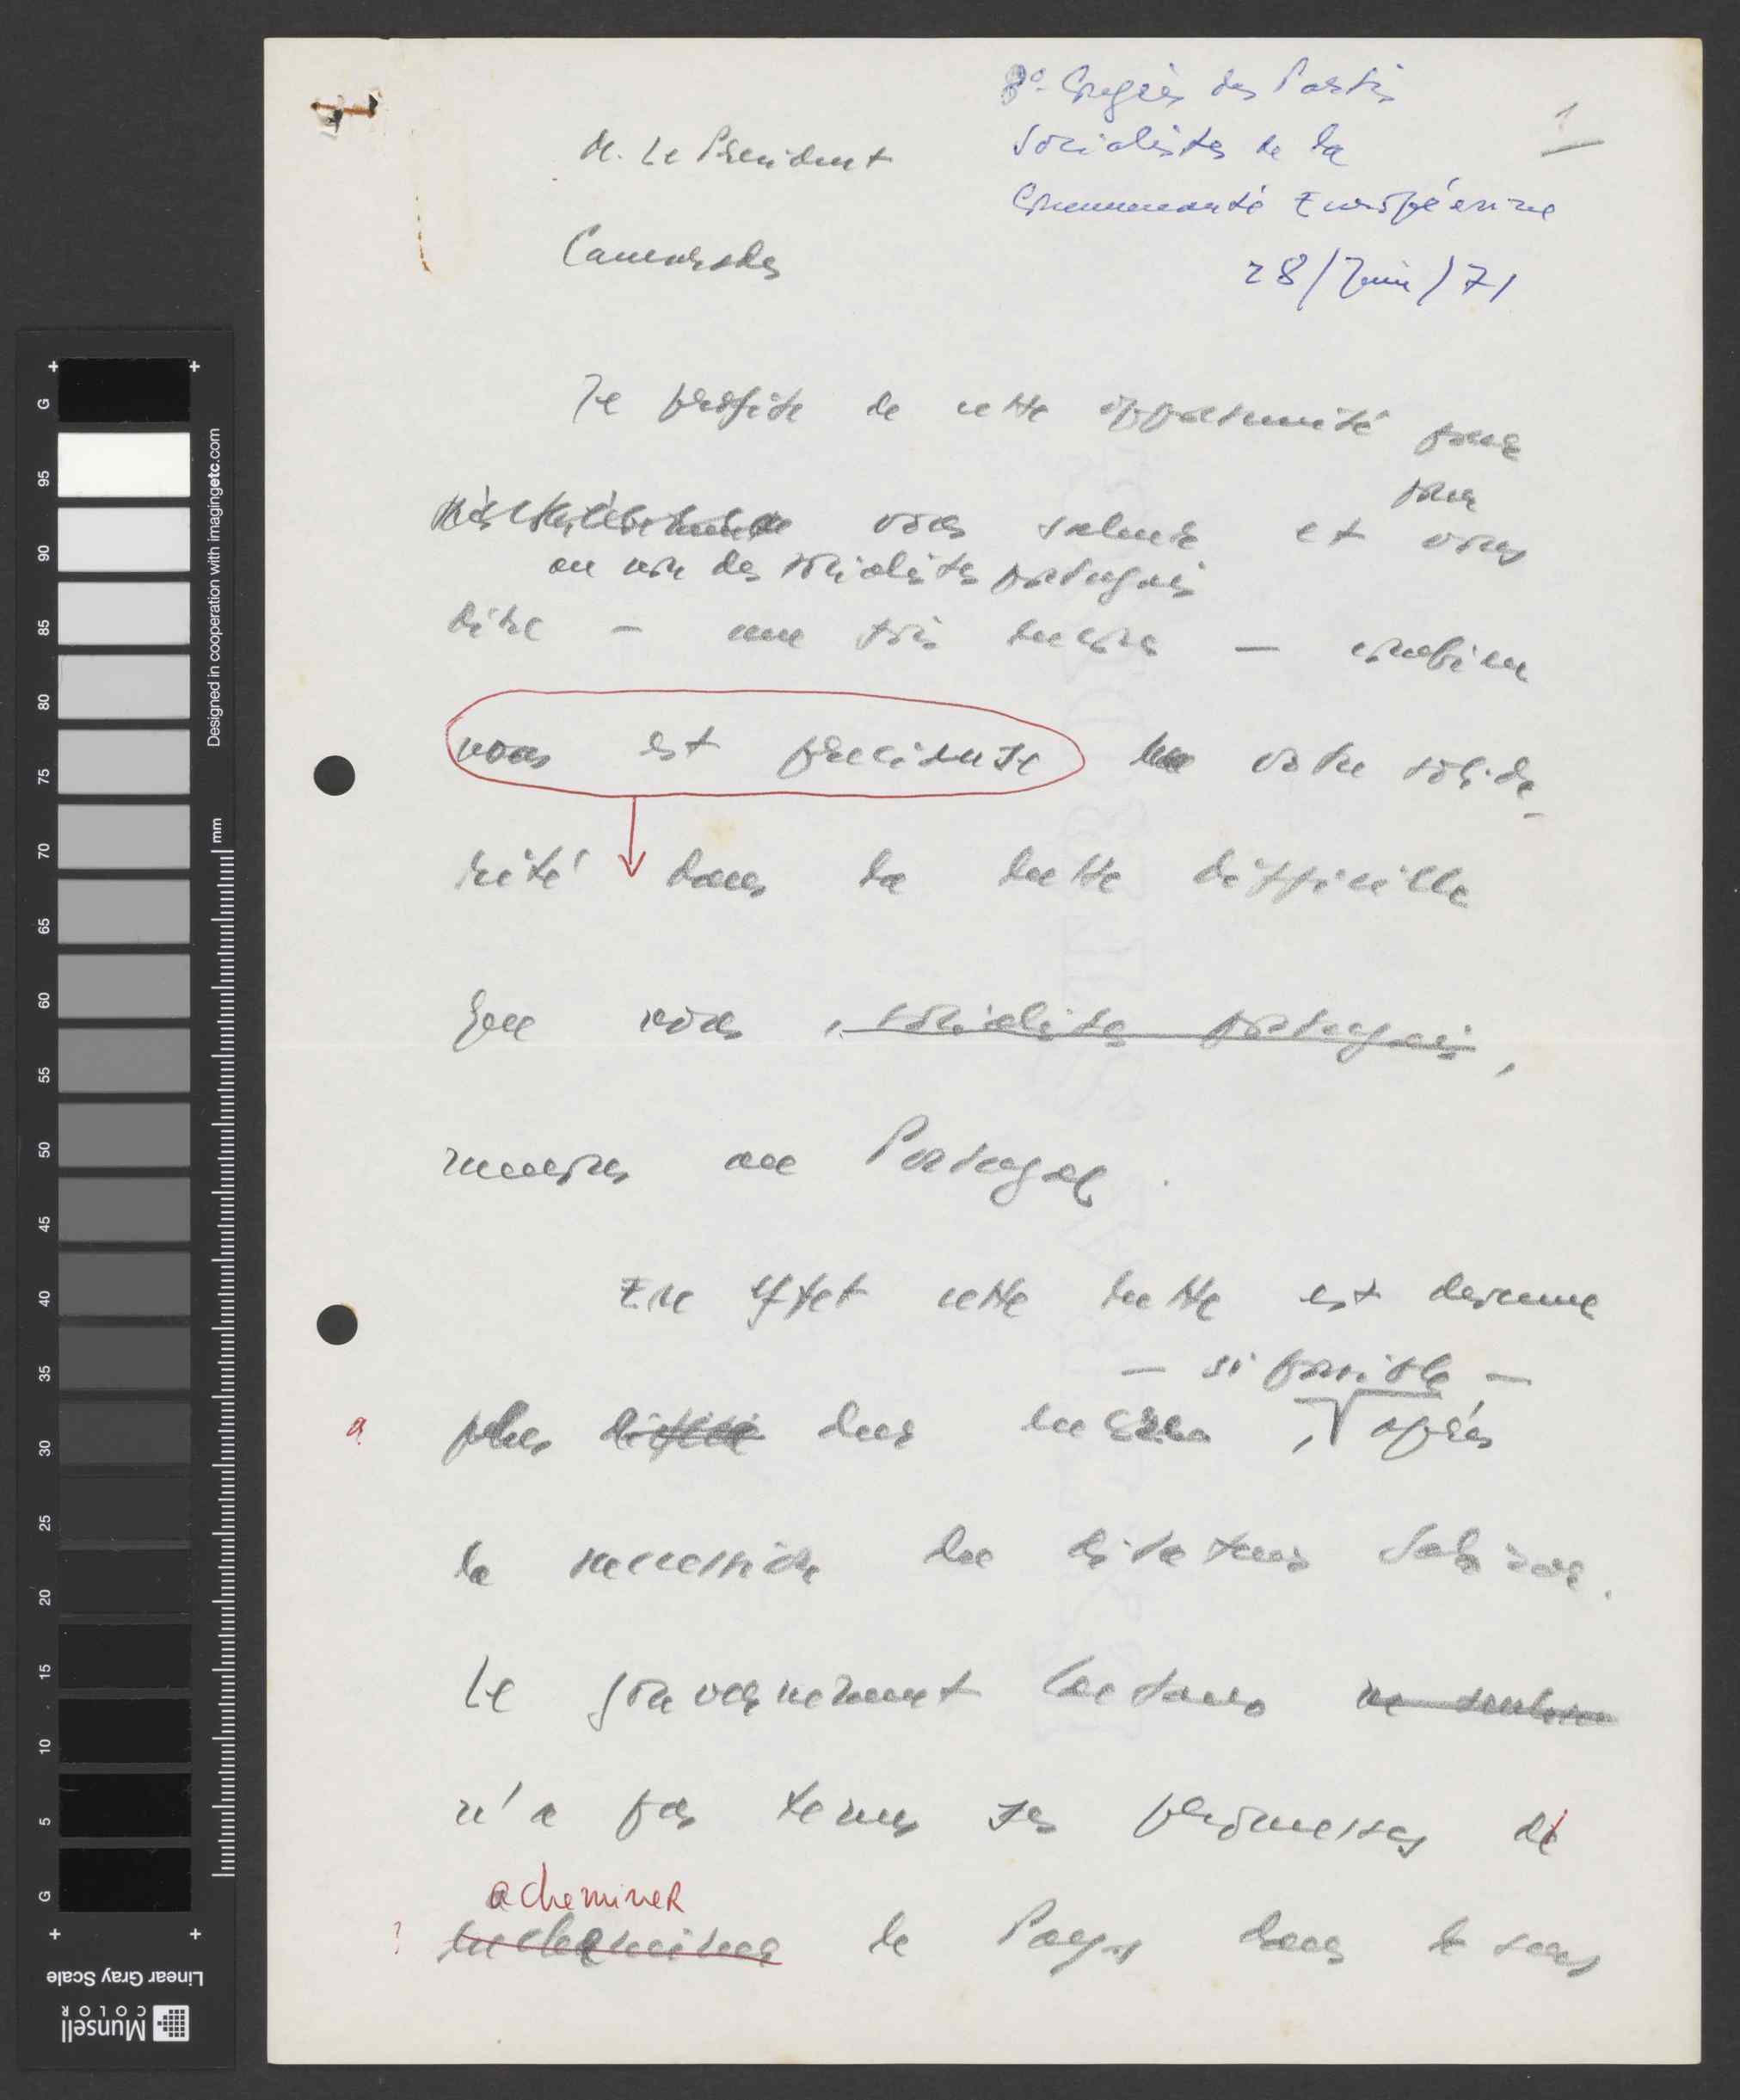 8º Congrès des Partis
Socialistes de la
Communauté Européenne
28/Juin/71
1
M. Le President
Camarades
Je profite de cette opportunité pour
pour
vous saluer et vous
au nom des socialistes portugais
dire – une fois encore – combien
nous est precieuse votre solida-
rité dans la lutte difficille
que nous, socialistes portugais,
menons au Portugal.
En effet cette lutte est devenue
– si possible –
a plus dur encore, après
la sucession du ditateur Salazar.
Le gouvernement Caetano
n'a pas tenus ses promesses de
acheminer
? le Pays dans le sens
G
95
90
85
80
75
70
65
60
55
50
45
40
35
30
25
20
15
10
5
G
mm
Designed in cooperation with imagingetc.com
Linear Gray Scale
Munsell
COLOR